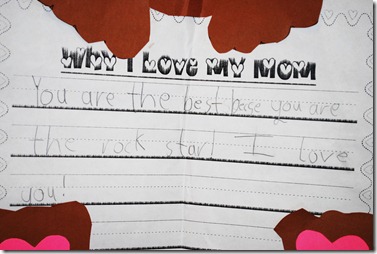 Why I Love My Mom
You are the best bace you are
the rock star! I love
you!